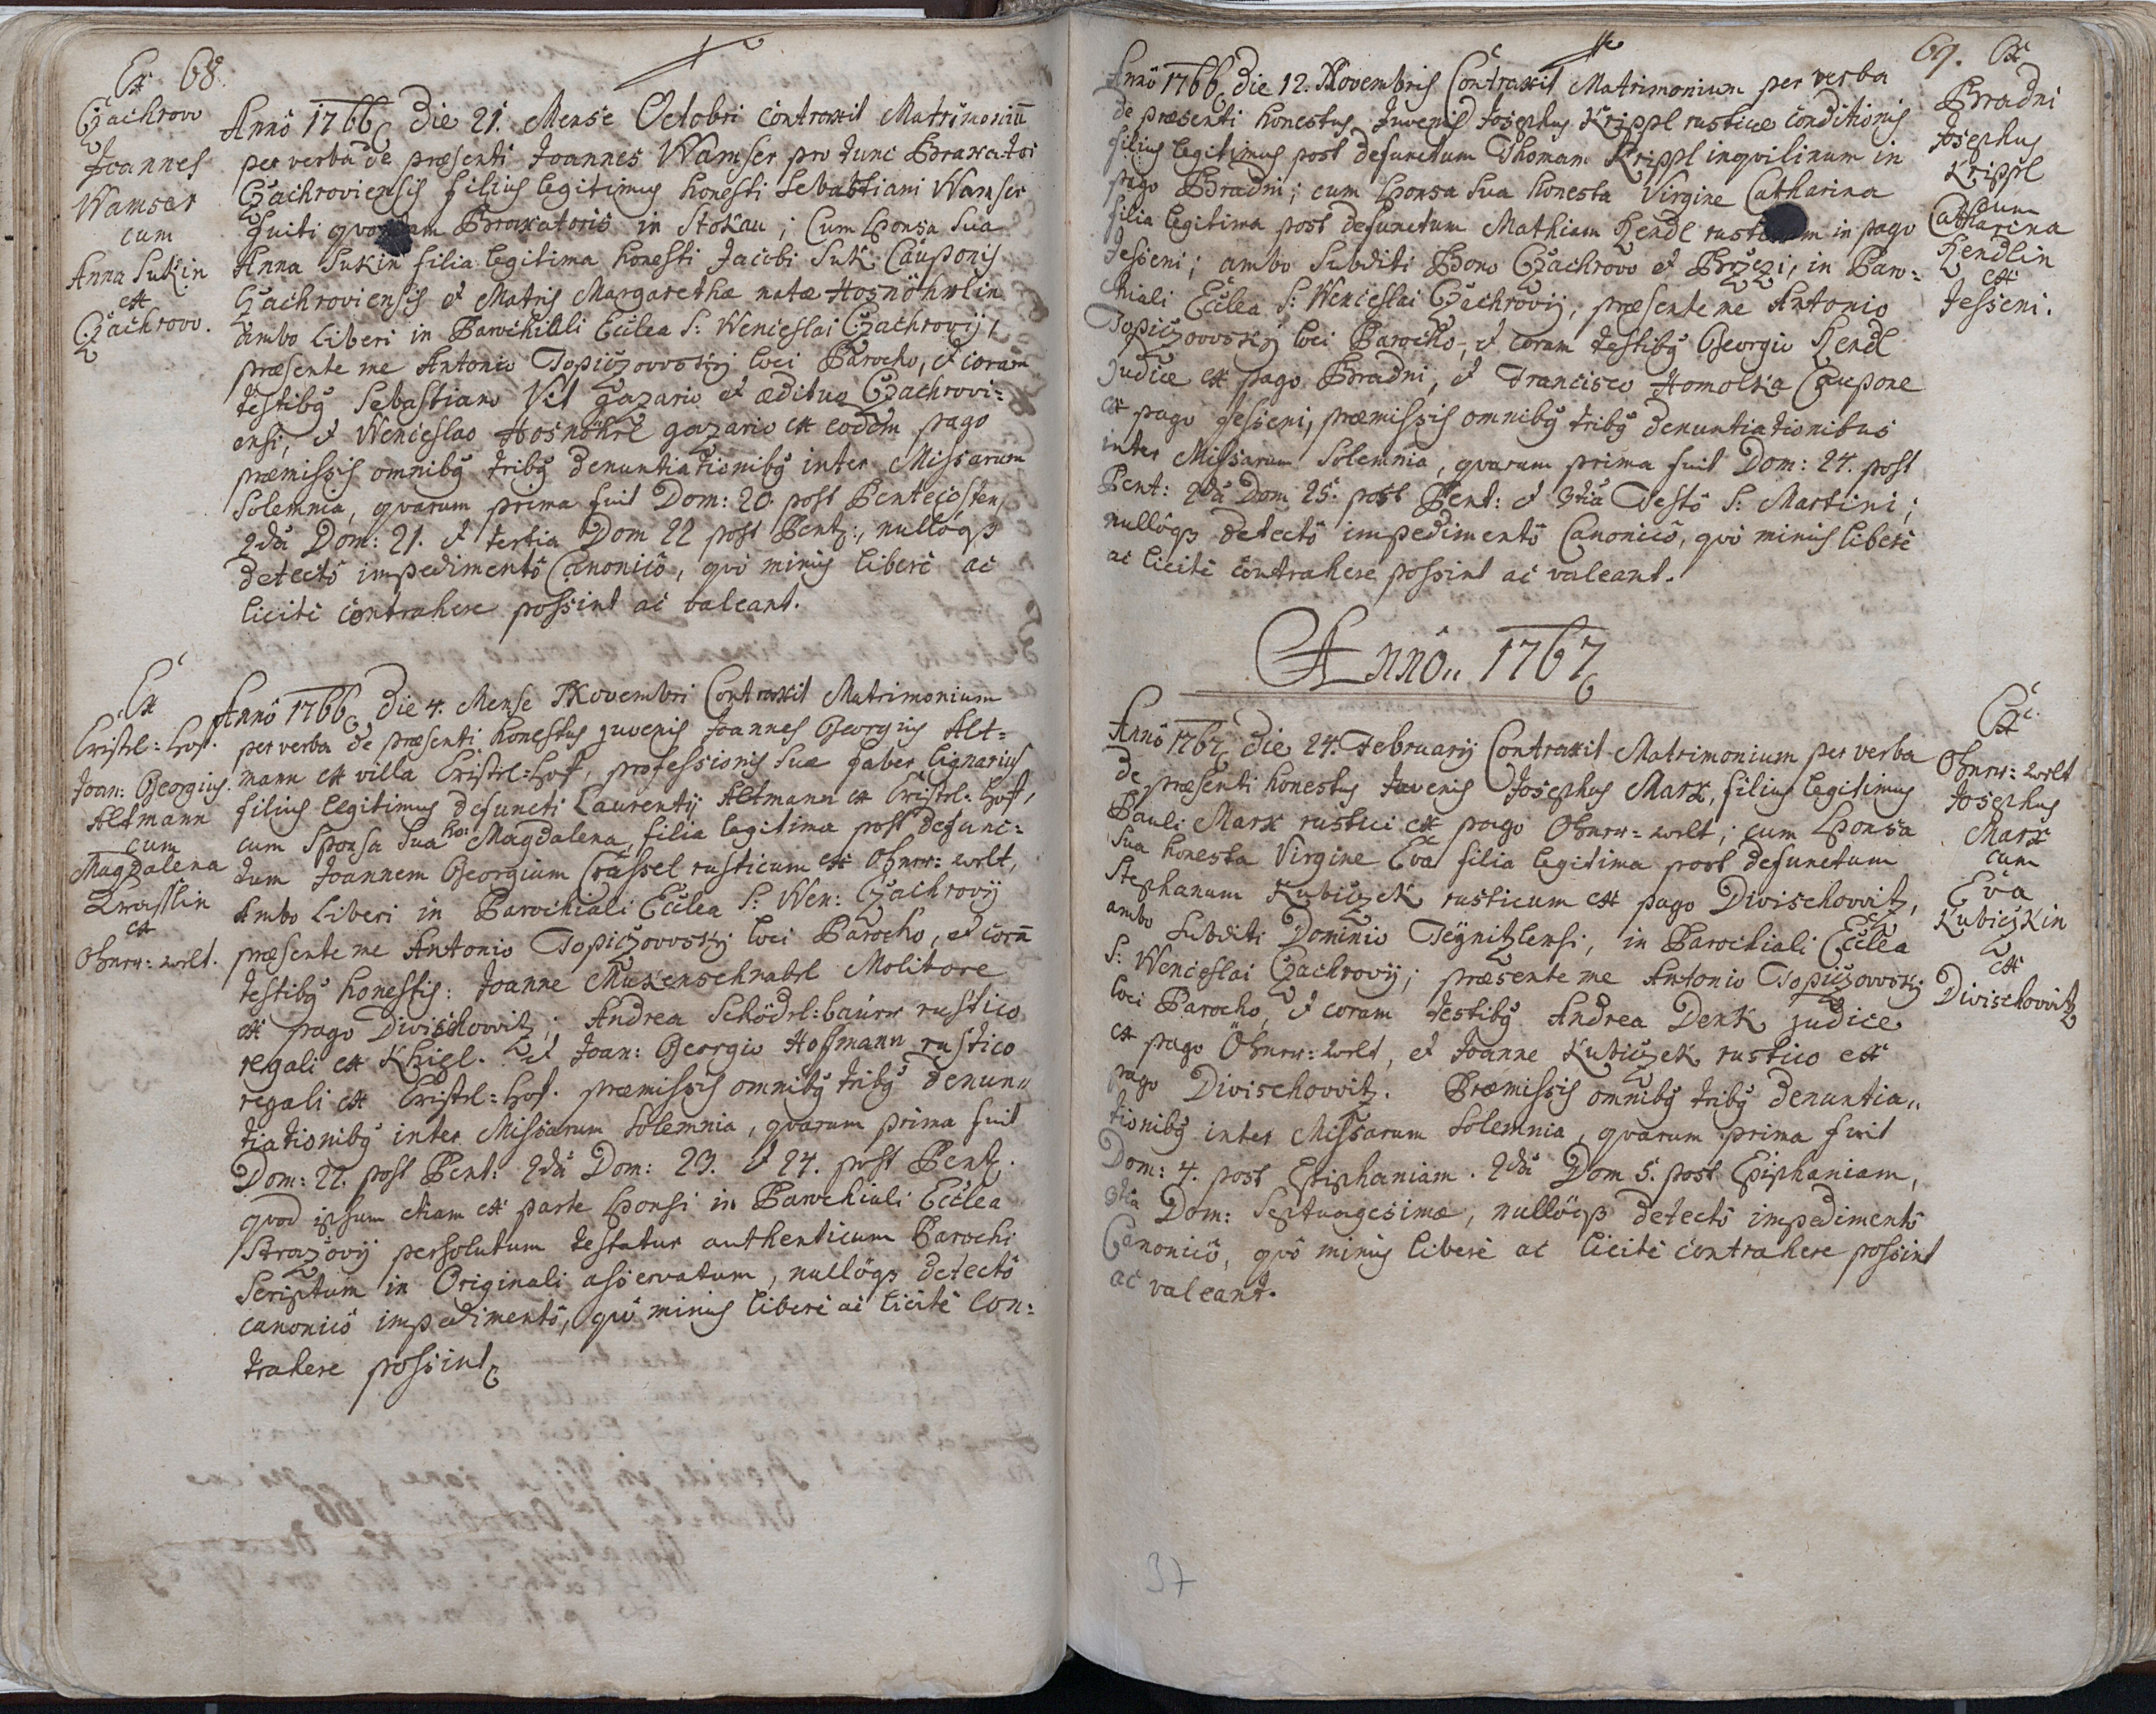 Ex 68.
Czachrow
Joannes
Wamser
cum
Anna Sukin
ex
Czachrow.
Annô 1766 die 21. Mense Octobri contraxit Matrimoniū
per verba de præsenti Joannes Wamser pro tunc Braxator
Czachroviensis filius legitimus honesti Sebastiani Wamser
fuiti quondam Braxatoris in Stokau; Cum Sponsa Sua
Anna Sukin filia legitima honesti Jacobi Suk Cauponis
Czachroviensis et Matris Margarethæ natæ Hosnöhrlin
ambo liberi in Parochiali Eccłea S: Wenceslai Czachrovij,
præsente me Antonio Topiczowsky loci Parocho, et coram
testibg Sebastiano Vit gazario et ædituo Czachrovi=
ensi, et Wenceslao Hosnöhrl gazario ex eodem pago
præmissis omnibg tribg denuntiationibg inter Missarum
Solemnia, quarum prima fuit Dom: 20. post Pentecosten,
2dâ Dom: 21. et tertia Dom 22 post Pent:, nullôqз
detectô impedimentô Canonicô, quô minus liberè ac
licitè contrahere possint ac valeant.
Ex
Cristel=Hof.
Joan: Georgius.
Altmann
cum
Magdalena
Krasslin
ex
Obnrr=welt.
Annô 1766 die 4. Mense Novembri Contraxit Matrimonium
per verba de præsenti honestus juvenis Joannes Georgius Alt=
mann ex villa Cristel=Hof, professionis suæ faber lignarius
filius legitimus defuncti Laurentij Altmann ex Cristel=Hof,
cum Sponsa Sua ho: Magdalena, filia legitima post defunc=
tum Joannem Georgium Crassel rusticum ex Obnrr=welt,
Ambo liberi in Parochiali Eccłea S: Wen: Czachrovij
præsente me Antonio Topiczowsky loci Parocho, et corā
testibg honestis: Joanne Mukenschnabl Molitore
ex pago Divischowitz; Andrea Schödel=baurr rustico
regali ex Khiel. et Joan: Georgio Hoffmann rustico
regali ex Cristel=Hof. præmissis omnibg tribg denun„
tiationibg inter Missarum Solemnia, quarum prima fuit
Dom: 22. post Pent: 2dâ Dom: 23. et 24. post Pent.
quod ipsum etiam ex parte Sponsi in Parochiali Eccłea
Strazovij persolutum testatur authenticum Parochi
Scriptum in Originali asservatum, nullôqз detectô
canonicô impedimentô, quô minus liberè ac licitè Con=
trahere possint
69. Ex
Bradni
Josephus
Krippl
cum
Catharina
Hendlin
ex
Jesseni.
Annô 1766 die 12. Novembris Contraxit Matrimonium per verba
de præsenti honestus Juvenis Josephus Krippl rusticæ conditionis
filius legitimus post defunctum Thomam Krippl inquilinum in
pago Bradni; cum Sponsa Sua honesta Virgine Catharina
filia legitima post defunctum Mathiam Hendl rusticum in pago
Jesseni; ambo Subditi Bono Czachrovo et Brzezi, in Paro=
chiali Eccłea S: Wenceslai Czachrovij, præsente me Antonio
Topiczowsky loci Parocho, et coram testibg Georgio Hendl
Judice ex pago Bradni, et Francisco Homolka Caupone
ex pago Jesseni, præmissis omnibg tribg denuntiationibus
inter Missarum Solemnia, quarum prima fuit Dom: 24. post
Pent: 2dâ Dom 25. post Pent: et 3tiâ Festô S: Martini;
nullôqз detectô impedimentô Canonicô, quô minus liberè
ac licitè contrahere possint ac valeant.
Annô„ 1767
Ex
Obnrr=welt
Josephus
Marx
cum
Eva
Kubiczkin
ex
Divischowitz
Annô 1767 die 24. Februarij Contraxit Matrimonium per verba
de præsenti honestus Juvenis Josephus Marx, filius legitimus
Pauli Marx rustici ex pago Obnrr=welt; cum Sponsa
Sua honesta Virgine Eva filia legitima post defunctum
Stephanum Kubiczek rusticum ex pago Divischowitz,
ambo Subditi Dominio Teynitzlensi, in Parochiali Eccłea
S: Wenceslai Czachrovij; præsente me Antonio Topiczowsky
loci Parocho, et coram testibg Andrea Denk judice
ex pago Öbnrr=welt, et Joanne Kubiczek rustico ex
pago Divischowitz. Præmissis omnibg tribg denuntia„
tionibg inter Missarum Solemnia, quarum prima fuit
Dom: 4. post Epiphaniam. 2dâ Dom 5. post Epiphaniam,
3tiâ Dom: Septuagesimæ, nullôqз detectô impedimentô
Canonicô, quô minus liberè ac licitè contrahere possint
ac valeant.
37